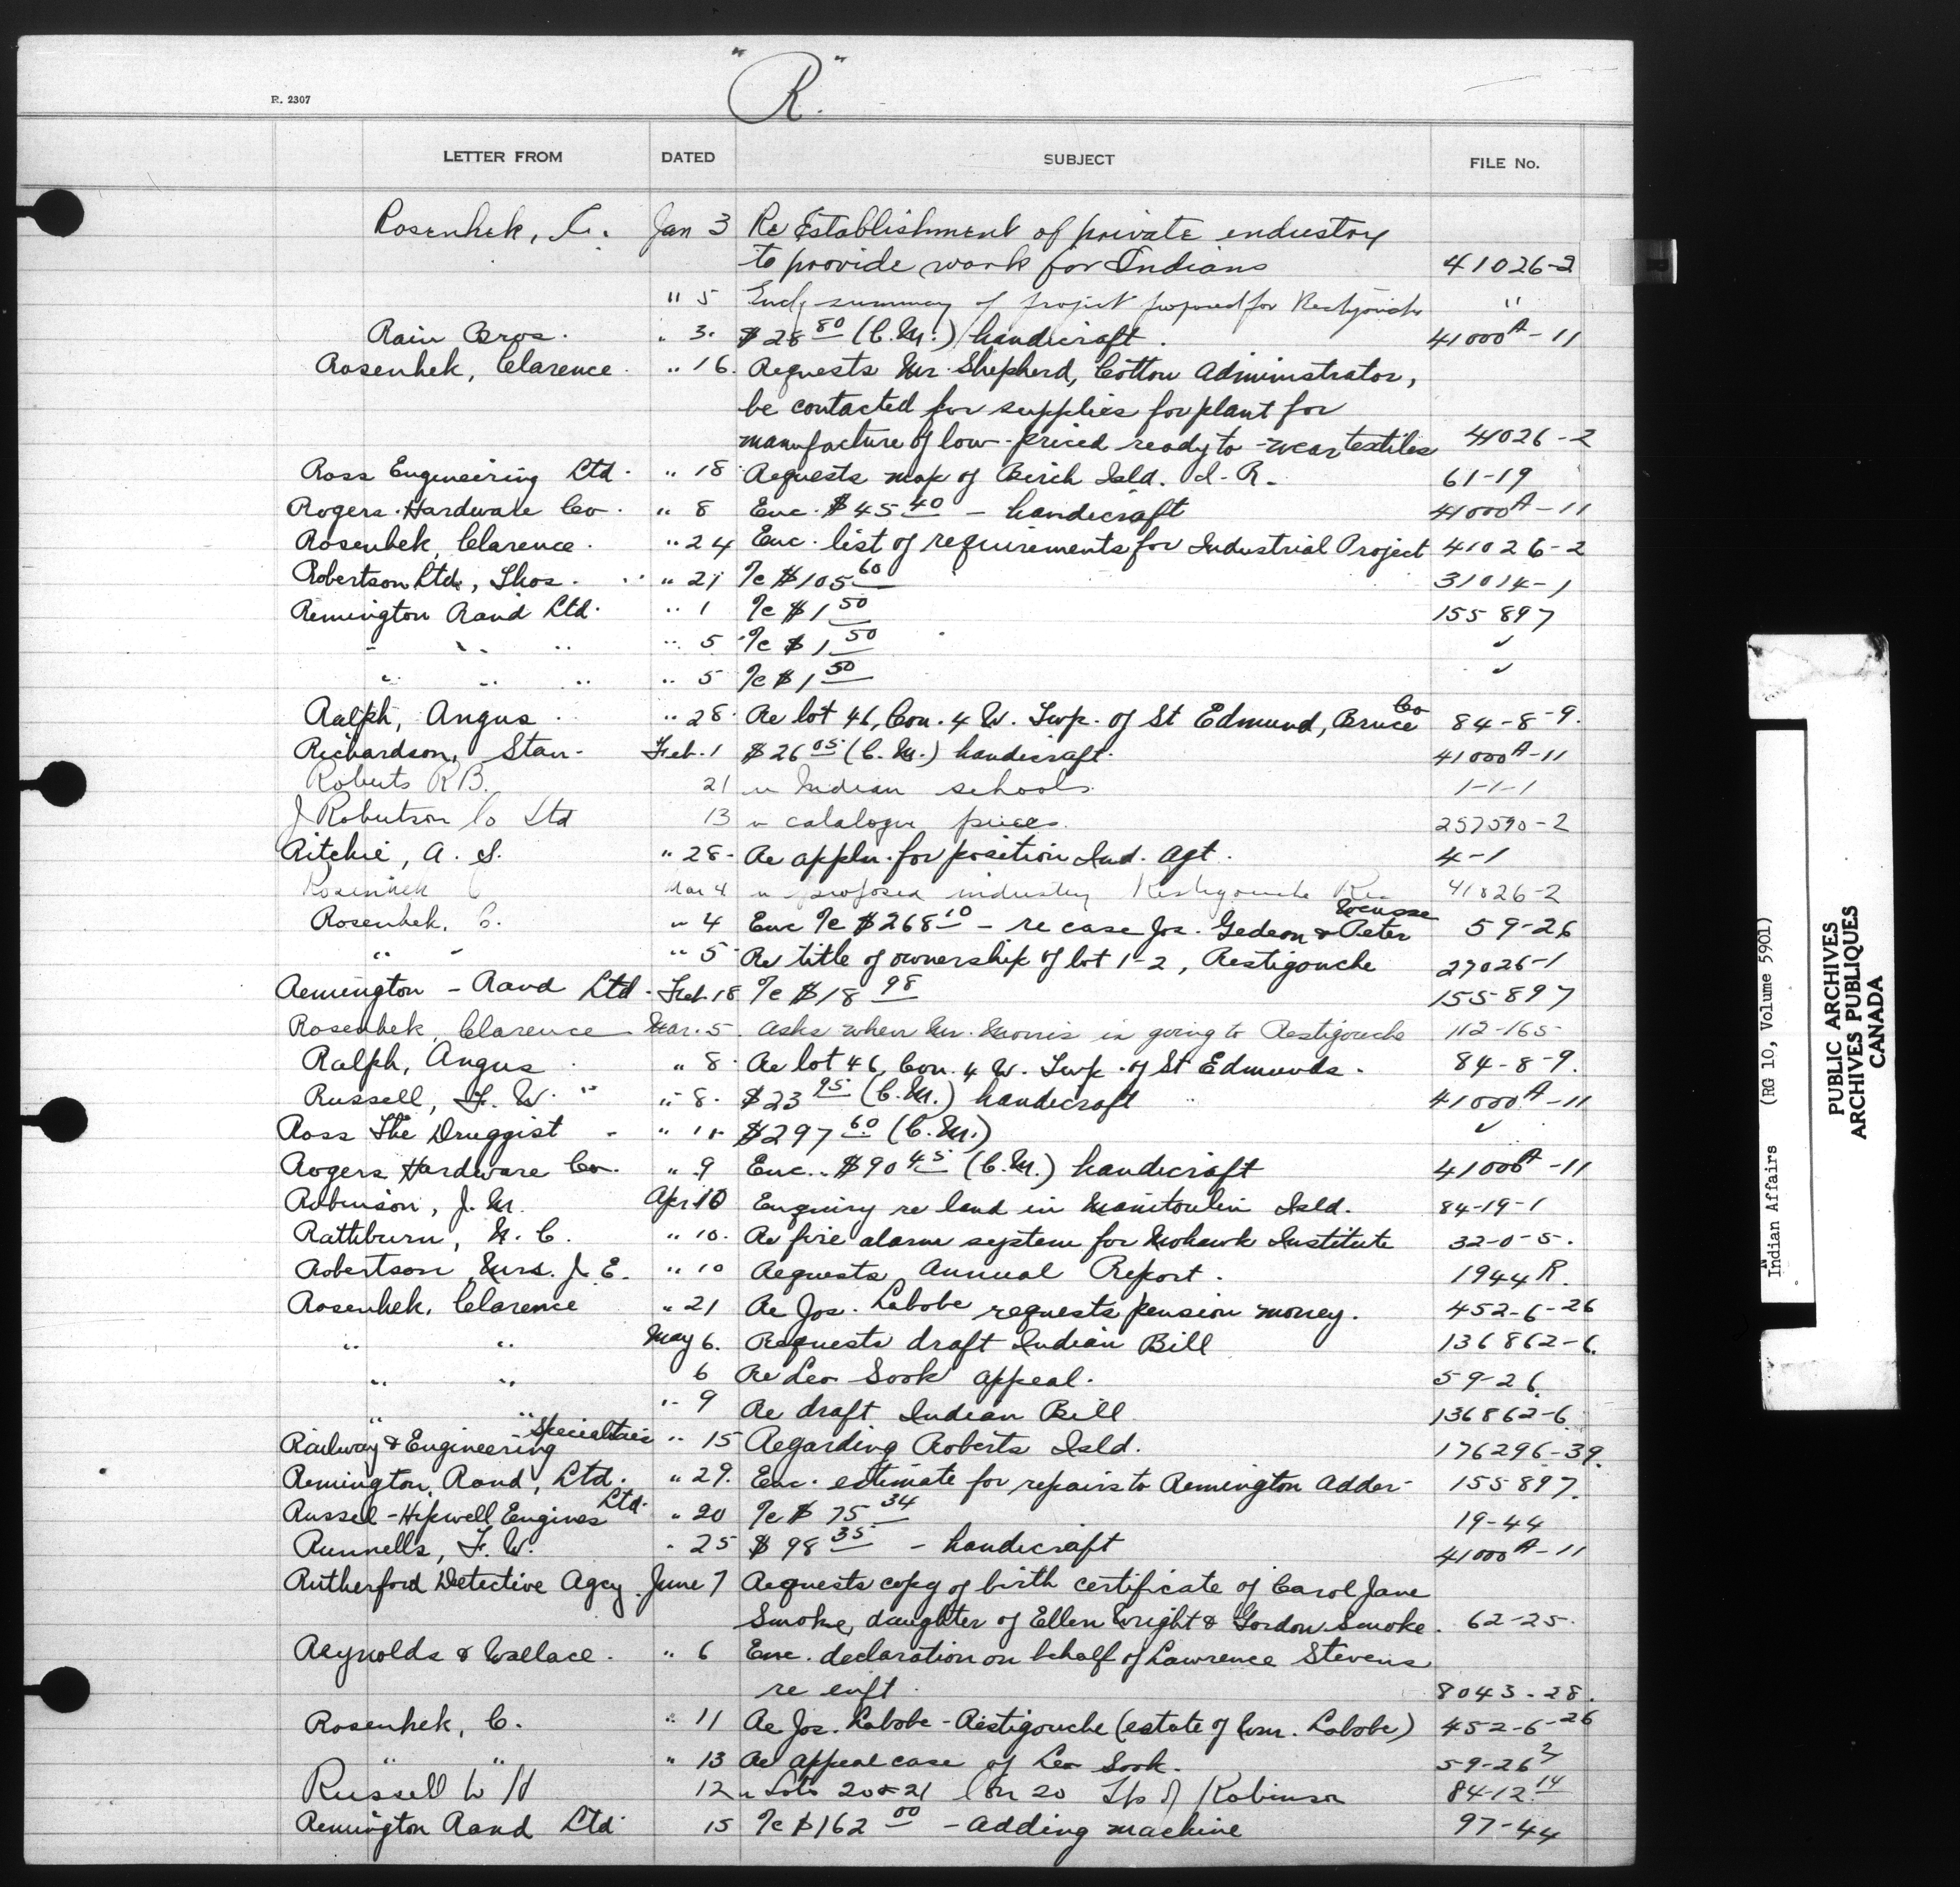 "R".
R. 2307
LETTER FROM DATED SUBJECT FILE No.
Rosenhek, C. Jan 3 Re Establishment of private industry
to provide work for Indians 41026-2
" 5 Encl. summary of project proposed for Restigouche "
Rain Bros. " 3. $28 80 (C.M.) handicraft. 41000A-11
Rosenhek, Clarence. " 16. Requests Mr. Shepherd, Cotton Administrator,
be contacted for supplies for plant for
manufacture of low-priced ready to-wear textiles 41026-2
Ross Engineering Ltd. " 18 Requests map of Birch Isld. I.R. 61-19
Rogers Hardware Co. " 8 Enc. $45 40 - handicraft 41000A-11
Rosenhek, Clarence. " 24 Enc. list of requirements for Industrial Project 41026-2
Robertson Ltd., Thos. " 21 I/c $105 60 31014-1
Remington Rand Ltd. " 1 I/c $1 50 155897
" " " " 5 I/c $1 50 "
" " " " 5 I/c $1 50 "
Ralph, Angus " 28. Re lot 46, Con. 4 W. Twp. of St Edmund, Bruce Co 84-8-9.
Richardson, Stan. Feb. 1 $26 05 (C.M.) handicraft. 41000A-11
Roberts R B. 21 re Indian schools 1-1-1
J Robertson Co Ltd 13 re catalogue prices. 257590-2
Ritchie, A. S. " 28. Re appln. for position Ind. Agt. 4-1
Rosenhek C Mar 4 re proposed industry Restigouche Res 41026-2
Rosenhek, C. " 4 Enc I/c $268 10 - re case Jos. Gedeon & Peter 59-26
" " " 5 Re title of ownership of lot 1-2, Restigouche 27026-1
Remington - Rand Ltd. Feb. 18 I/c $18 98 155897
Rosenhek, Clarence Mar. 5 Asks when Mr. Morris is going to Restigouche 112-165
Ralph, Angus " 8. Re lot 46, Con. 4 W. Twp. of St Edmunds. 84-8-9.
Russell, F. W. " 8. $23 95 (C.M.) handicraft 41000A-11
Ross The Druggist " $297 60 (C.M.) "
Rogers Hardware Co. " 9 Enc. $90 45 (C.M.) handicraft 41000A-11
Robinson, J. M. Apr 10 Enquiry re land in Manitoulin Isld. 84-19-1
Rathburn, N. C. " 10. Re fire alarm system for Mohawk Institute 32-0-5.
Robertson, Mrs. J. E. " 10 Requests Annual Report. 1944 R.
Rosenhek, Clarence " 21 Re Jos. Labobe requests pension money. 452-6-26
" " May 6. Requests draft Indian Bill 136862-6.
" " 6 Re Leo Sook appeal. 59-26
" " " 9 Re draft Indian Bill 136862-6
Railway & Engineering Specialties " 15 Regarding Roberts Isld. 176296-39.
Remington, Rand, Ltd. " 29. Enc. estimate for repairs to Remington Adder. 155897.
Russel-Hipwell Engines Ltd. " 20 I/c $75 34 19-44
Runnells, F. W. " 25 $98 35 - handicraft 41000A-11
Rutherford Detective Agcy. June 7 Requests copy of birth certificate of Carol Jane
Smoke, daughter of Ellen Wright & Gordon Smoke. 62-25.
Reynolds & Wallace. " 6 Enc. declaration on behalf of Lawrence Stevens
re enft. 8043-28.
Rosenhek, C. " 11 Re Jos. Labobe - Restigouche (estate of Wm. Labobe) 452-6-26
" " " 13 Re appeal case of Leo Sook. 59-26 2
Russell W H 12 re Lots 20 & 21 Con 20 Tp of Robinson 84-12 14
Remington Rand Ltd. 15 I/c $162 00 - Adding machine 97-44
Indian Affairs (RG 10, Volume 5901)
PUBLIC ARCHIVES
ARCHIVES PUBLIQUES
CANADA